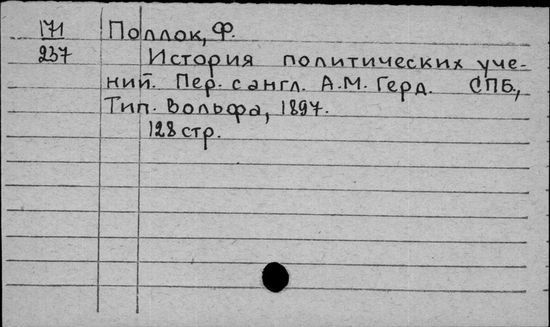 171 Поллок, Ф.
237 История политических уче-
ний. Пер. с англ. А.М. Герд. СПБ.,
Тип. Вольфа, 1897.
128 стр.